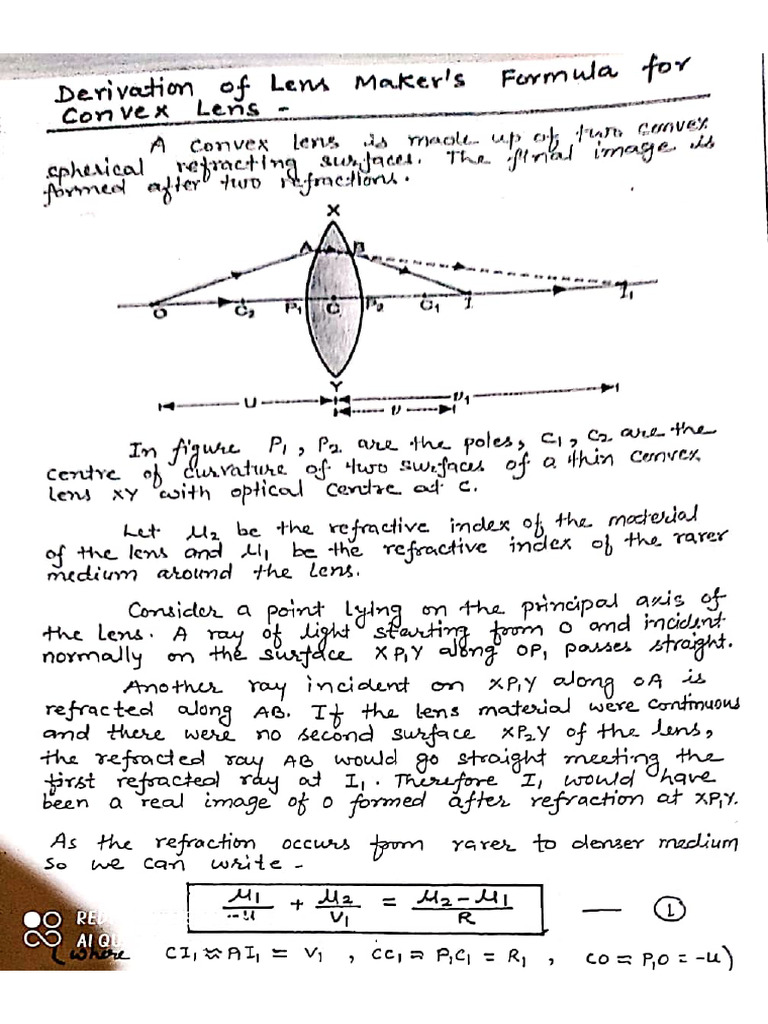 Derivation of Lens Maker's Formula for
Convex Lens -
A convex lens is made up of two convex
spherical refracting surfaces. The final image is
formed after two refractions.
X
A B
O C2 P1 C P2 C1 I I1
Y
u v1
v
In figure P1, P2 are the poles, C1, C2 are the
centre of curvature of two surfaces of a thin convex
lens XY with optical centre at C.
Let μ2 be the refractive index of the material
of the lens and μ1 be the refractive index of the rarer
medium around the lens.
Consider a point lying on the principal axis of
the lens. A ray of light starting from O and incident
normally on the surface XP1Y along OP1 passes straight.
Another ray incident on XP1Y along OA is
refracted along AB. If the lens material were continuous
and there were no second surface XP2Y of the lens,
the refracted ray AB would go straight meeting the
first refracted ray at I1. Therefore I1 would have
been a real image of O formed after refraction at XP1Y.
As the refraction occurs from rarer to denser medium
so we can write -
μ1/-u + μ2/V1 = μ2-μ1/R — ①
(where CI1 ≈ AI1 = V1, CC1 = P1C1 = R1, CO = P1O = -u)
AI QU